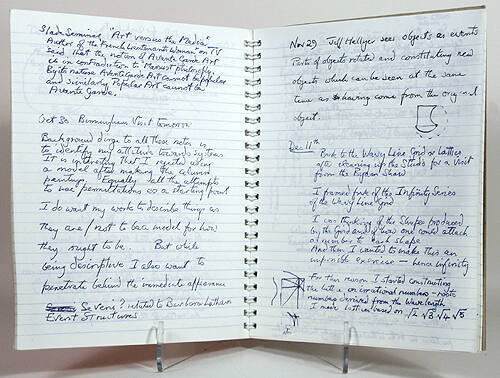 Slade Seminar "Art versus the Media"
Author of the French Lieutenants Woman on TV
said that the notion of Avante Garde Art
is in contradiction to Marxist philosophy
By its nature Avante Garde Art cannot be popular
and similarly Popular Art cannot be
Avante Garde.
Oct 30 Birmingham Visit tomorrow
Background dirge to all these notes is
to identify my attitude towards systems
It is interesting that I rejected
a model after making the
painting. Equally all the attempts
to use permutations as a starting point
I do want my work to describe things as
They are / not to be a model for how
They ought to be. But while
being descriptive I also want to
penetrate behind the immediate appearance
Series? related to Barbara Latham
Event Structures
Nov 29 Jeff Hellyer sees objects as events
Parts of objects rotated and constituting new
objects which can be seen at the same
time as having come from the original
object.
Dec 11th
Back to the Wavy Line Grid or Lattice
after cleaning up the Studio for a Visit
from the Shaw
I framed five of the Infinity Series
of the Wavy Line Grid
I was thinking of the Shapes produced
by the Grid and of how one could attach
a number to each shape
And then I wanted to make this an
infinite exercise — hence infinity
For this reason I started constructing
the lattice on irrational numbers – roots
numbers derived from the Wavelength
I made lattices based on √2 √3 √4 √5